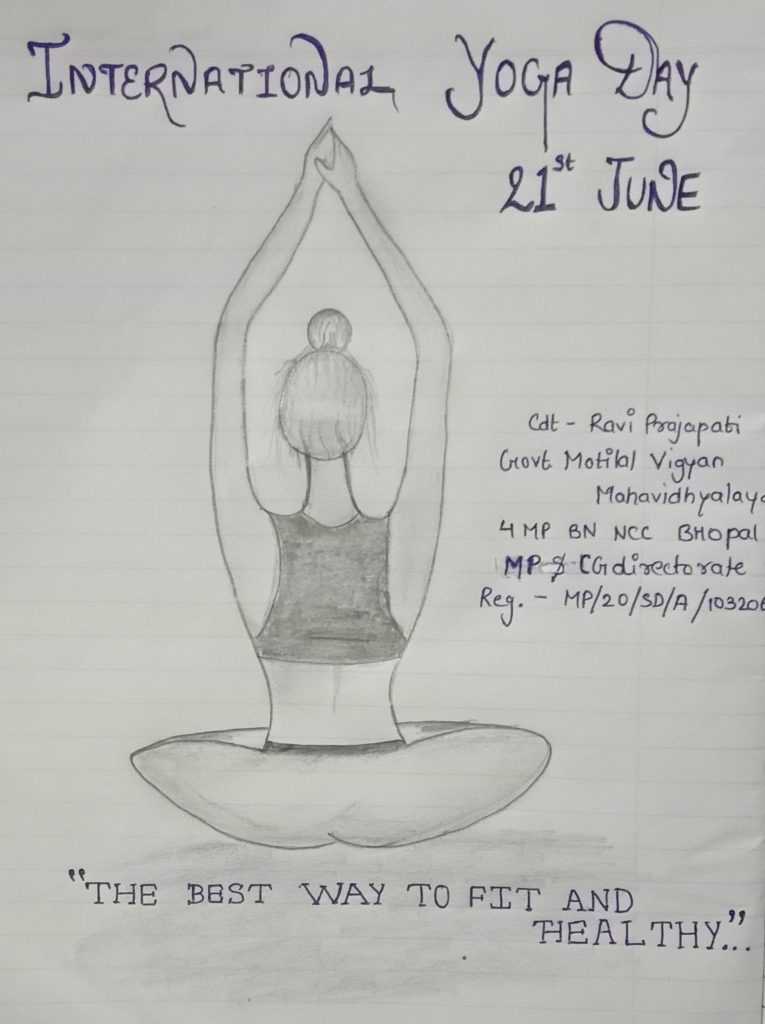 INTERNATIONAL YOGA DAY
21st JUNE
Cdt - Ravi Prajapati
Govt Motilal Vigyan
Mahavidhyalaya
4 MP BN NCC BHOPAL
MP & CG directorate
Reg. - MP/20/SD/A/103206
"THE BEST WAY TO FIT AND
HEALTHY..."